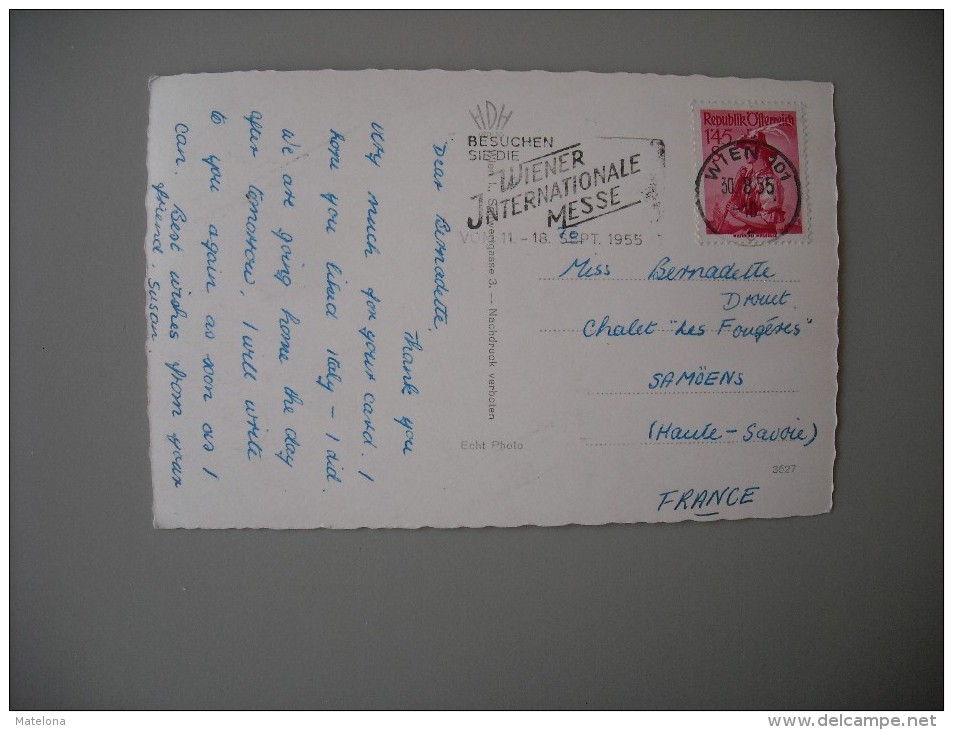 Dear Bernadette,
Thank you
very much for your card. I
hope you liked Italy – I did.
We are going home the day
after tomorrow, I will write
to you again as soon as I
can. Best wishes from your
friend, Susan.
HDH
Wien II, 3. – Nachdruck verboten
Echt Photo
BESUCHEN
SIE DIE
WIENER
INTERNATIONALE
MESSE
VOM 11. - 18. SEPT. 1955
Republik Österreich
1'45
WIEN 101
30.8.55
To
Miss Bernadette
Drouot
Chalet "Les Fougères"
SAMÖENS
(Haute-Savoie)
FRANCE
3627
Matelona
www.delcampe.net